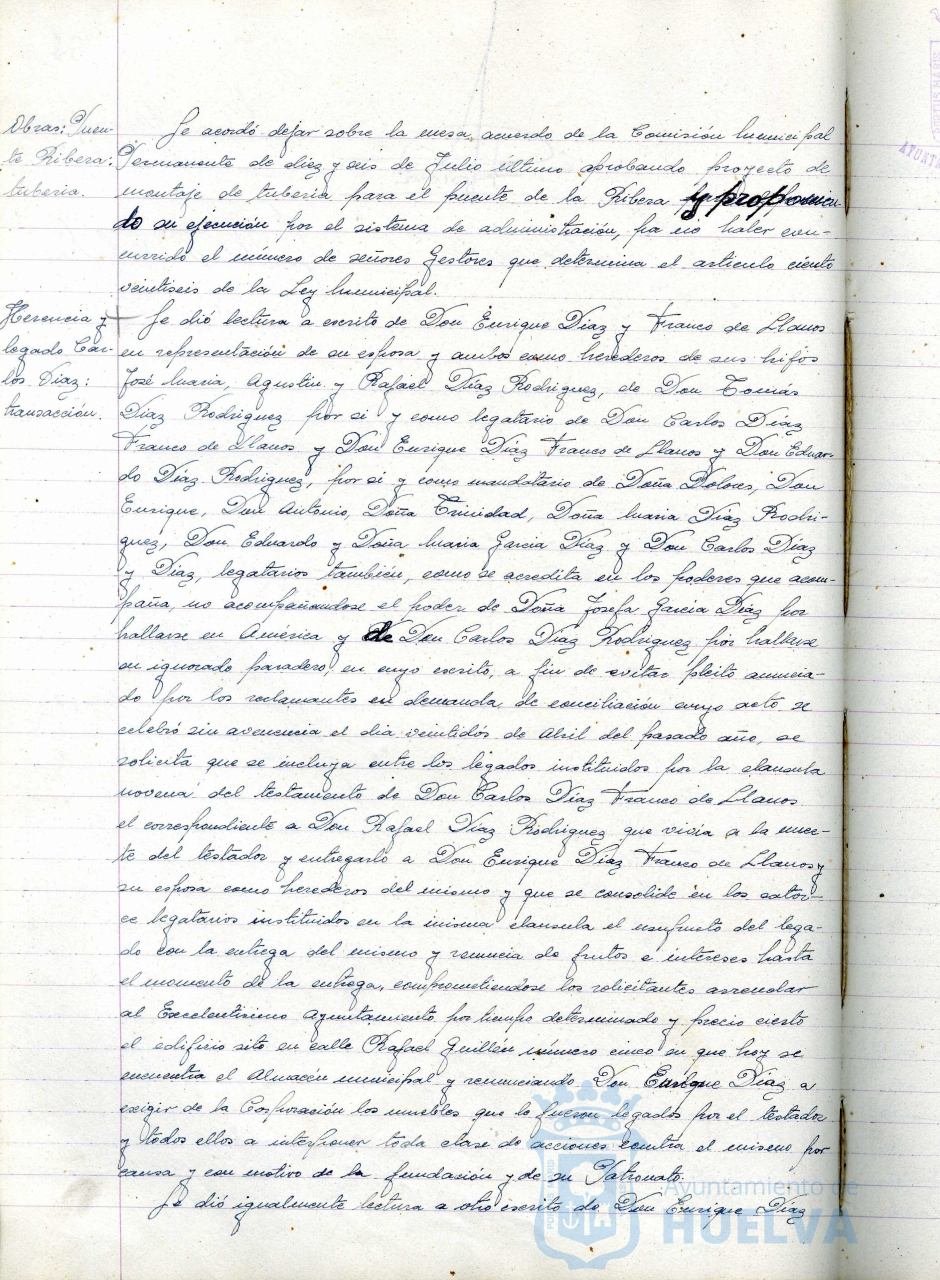 Obras: Puen-
te Ribera:
tuberia.
Se acordó dejar sobre la mesa, acuerdo de la Comisión Municipal
Permanente de diez y seis de Julio último aprobando proyecto de
montaje de tuberia para el puente de la Ribera y proponien-
do su ejecución por el sistema de administración, por no haber con-
currido el número de señores Gestores que determina el articulo ciento
veintiseis de la Ley Municipal.
Herencia y
legado Car-
los Diaz:
transacción.
Se dió lectura a escrito de Don Enrique Diaz y Franco de Llanos
en representación de su esposa y ambos como herederos de sus hijos
José Maria, Agustin y Rafael Diaz Rodriguez, de Don Tomás
Diaz Rodriguez por si y como legatario de Don Carlos Diaz
Franco de Llanos y Don Enrique Diaz Franco de Llanos y Don Eduar-
do Diaz Rodriguez, por si y como mandatario de Doña Dolores, Don
Enrique, Don Antonio, Doña Trinidad, Doña Maria Diaz Rodri-
guez, Don Eduardo y Doña Maria Garcia Diaz y Don Carlos Diaz
y Diaz, legatarios también, como se acredita en los poderes que acom-
paña, no acompañandose el poder de Doña Josefa Garcia Diaz por
hallarse en America y de Don Carlos Diaz Rodriguez por hallarse
en ignorado paradero, en cuyo escrito, a fin de evitar pleito anuncia-
do por los reclamantes en demanda de conciliación cuyo acto se
celebró sin avenencia el dia veintidós de Abril del pasado año, se
solicita que se incluya entre los legados instituidos por la clausula
novena del testamento de Don Carlos Diaz Franco de Llanos
el correspondiente a Don Rafael Diaz Rodriguez que vivia a la muer-
te del testador y entregarlo a Don Enrique Diaz Franco de Llanos y
su esposa como herederos del mismo y que se consolide en los cator-
ce legatarios instituidos en la misma clausula el usufructo del lega-
do con la entrega del mismo y renuncia de frutos e intereses hasta
el momento de la entrega, comprometiendose los solicitantes arrendar
al Excelentisimo Ayuntamiento por tiempo determinado y precio cierto
el edificio sito en calle Rafael Guillén número cinco en que hoy se
encuentra el Almacén municipal y renunciando Don Enrique Diaz a
exigir de la Corporación los muebles que le fueron legados por el testador
y todos ellos a interponer toda clase de acciones contra el mismo por
causa y con motivo de la fundación y de su Patronato.
Se dió igualmente lectura a otro escrito de Don Enrique Diaz
Ayuntamiento de
HUELVA